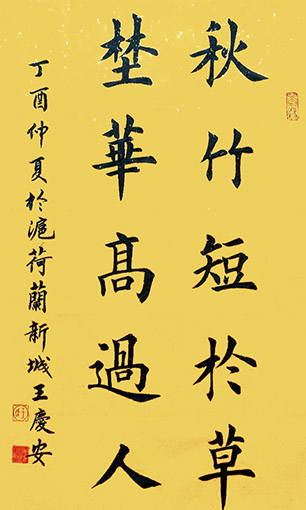 秋竹短於草
埜華髙過人
丁酉仲夏於滬荷蘭新城王慶安